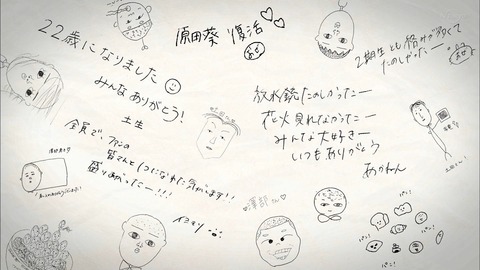 22歳になりました
みんなありがとう!
土生
原田葵 復活
2期生とも絡みが多くて
たのしかったー。
放水銃たのしかったー
花火見れなかったー
みんな大好きー
いつもありがとう
あかねん
全員で、ファンの
皆さんと1つになれた気がします!!
盛りあがったー!!!
イノリ
澤部さん
パン!
パン!
パン!
パン!